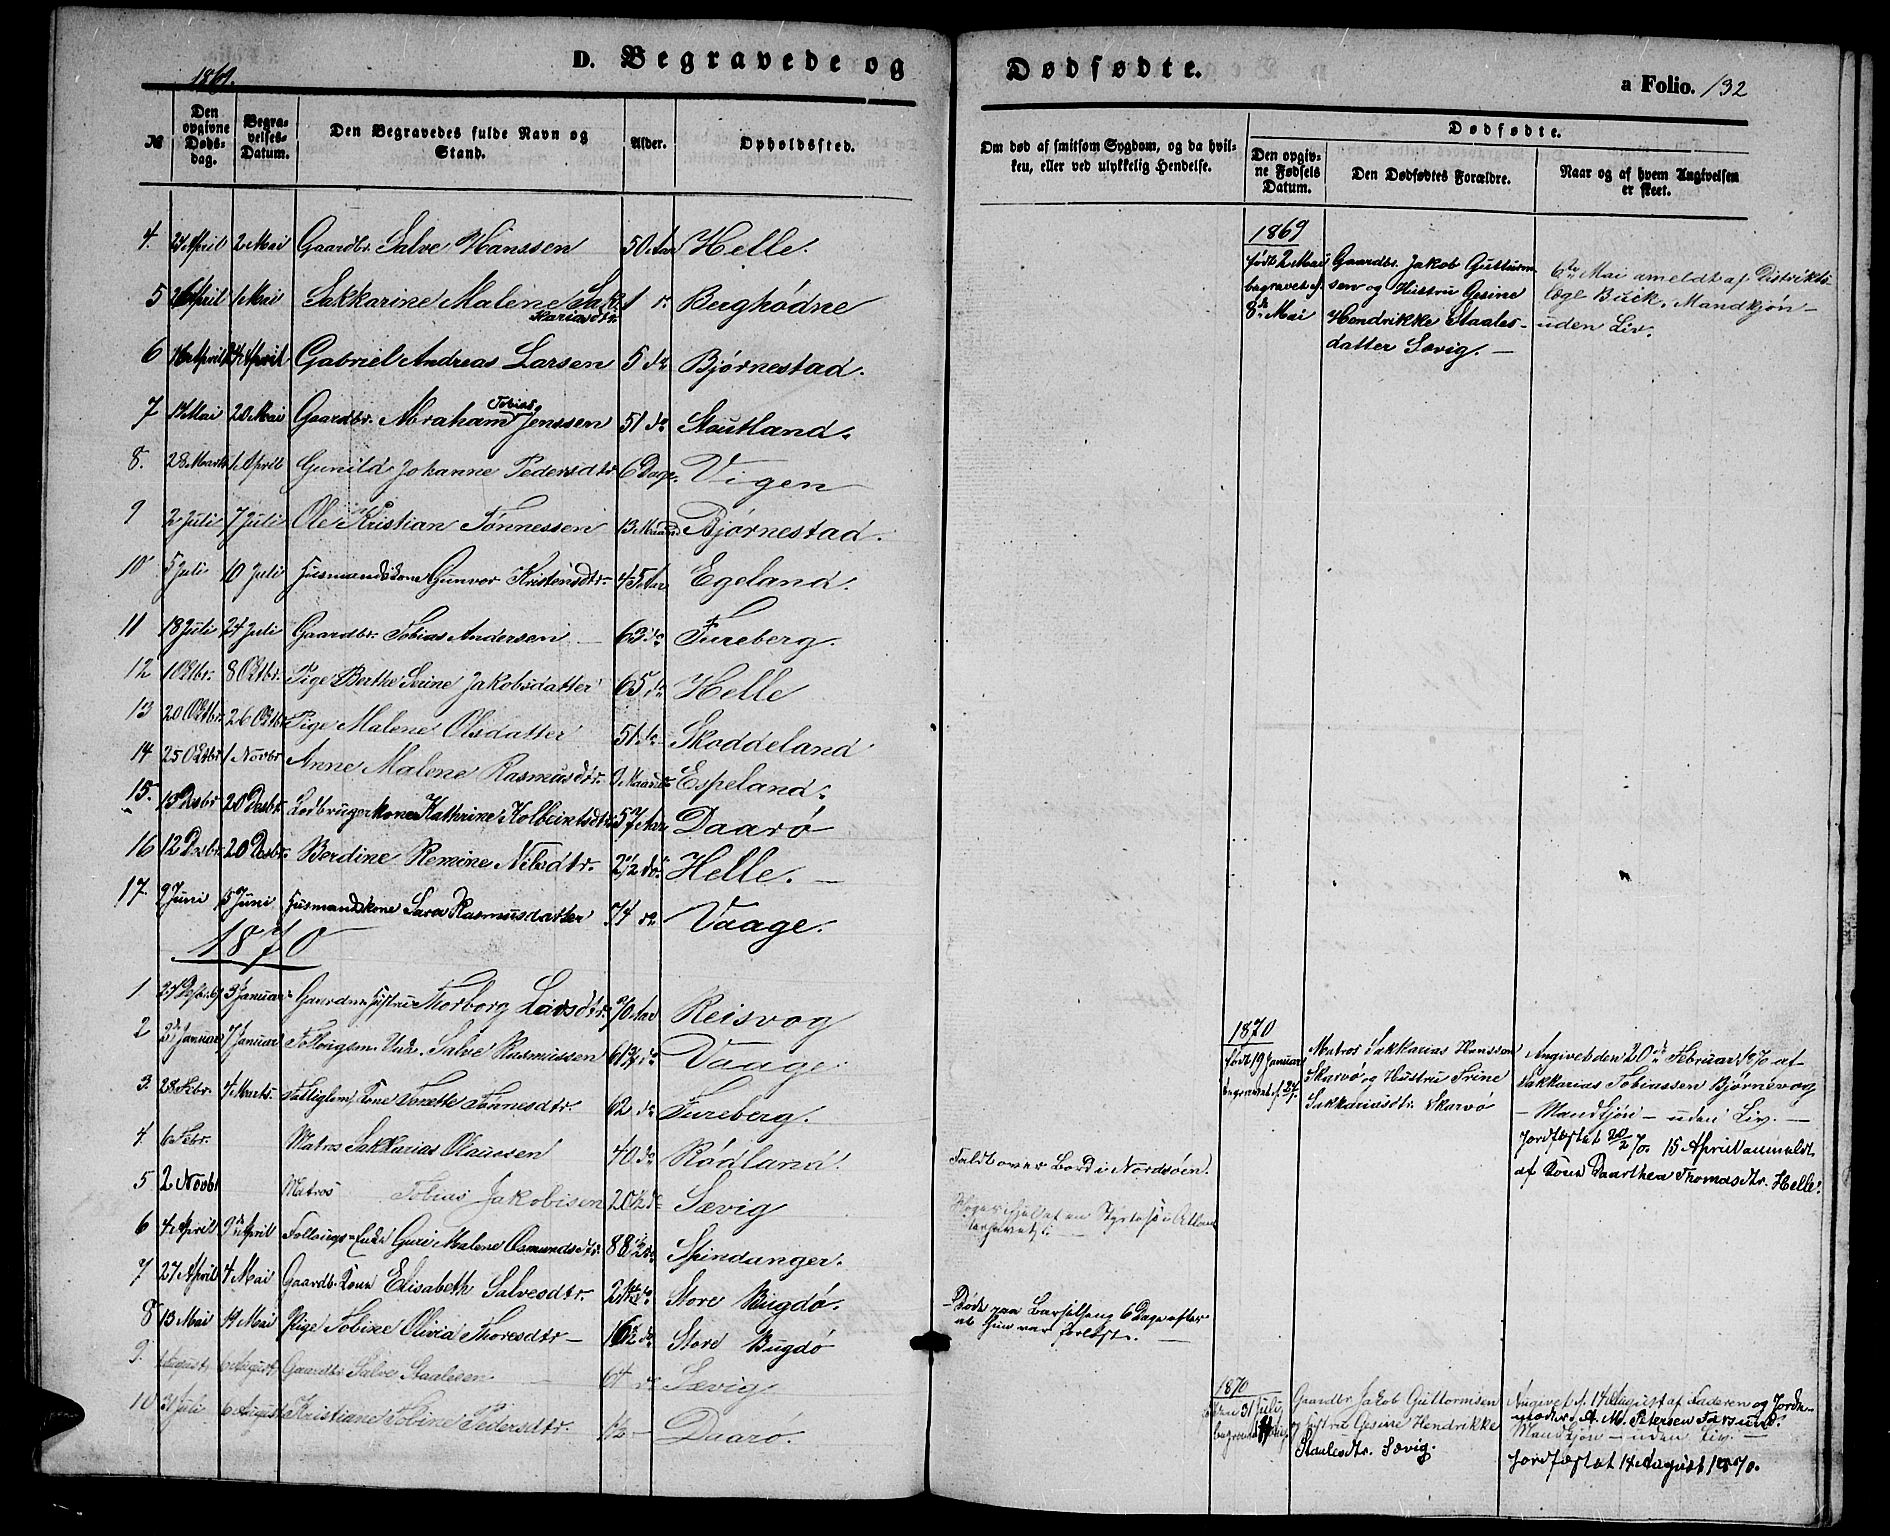 D. Begravede og Dødfødte.
1869.
a Folio. 132
№
Den opgivne Døds-dag.
Begra-velses-Datum.
Den Begravedes fulde Navn og Stand.
Alder.
Opholdssted.
Om død af smitsom Sygdom, og da hvil-
ken, eller ved ulykkelig Hendelse.
Dødfødte.
Den opgiv-ne Fødsels Datum.
Den Dødfødtes Forældre.
Naar og af hvem Angivelsen er skeet.
4. 24 April 2 Mai Gaardbr. Salve Hanssen 50 Aar Helle.
5 26 April 1 Mai Sakkarine Malene Sak-
kariasdtr. 1 do Berghødne
6 16 April 24 April Gabriel Andreas Larsen 5 do Bjørnestad.
7 14 Mai 20 Mai Gaardbr. Abraham Tobias Jenssen 51 do Stoutland.
8. 28 Marts 1 April Gunild Johanne Pedersdtr. 6 Dage. Vigen
9 2 Juli 7 Juli Ole Kristian Tønnessen 13 Maand. Bjørnestad.
10 5 Juli 10 Juli Husmandskone Gunvor Kristensdtr. 45 Aar Egeland.
11 18 Juli 24 Juli Gaardbr. Tobias Andersen 63 do Fureberg.
12 1 Oktbr. 8 Oktbr. Pige Berthe Serine Jakobsdatter 65 do Helle
13 20 Oktbr. 26 Oktbr. Pige Malene Olsdatter 51 do Skoddeland
14 25 Oktbr. 1 Novbr Anne Malene Rasmusdtr. 9 Maaneder Espeland.
15. 15 Desbr 20 Desbr. Kathrine Kolbeintsdtr. 57 Aar Daarø
16 12 Desbr. 20 Desbr. Berdine Remine Nilsdtr. 2 1/2 do. Helle.
17. 9 Juni 5 Juni Husmandskone Sara Rasmusdatter 74 do Vaage.
1870
1 27 Desbr. 69 3 Januar Gaardm. Hustru Thorborg Larsdtr. 70 Aar Reisvog
2 2 Januar 7 Januar Salve Rasmussen Vaage.
3. 28 Febr. 4 Marts. Kone Tonette Tønnesdtr. 62 do Fureberg.
4. 6 Febr. Matros Sakkarias Olaussen 40 do Rødland. Faldt over Bord i Nordsøen.
5 2 Novbr Matros Tobias Jakobsen 20 1/2 do Sævig
6 4 April 9de April Enke Guri Malene Osmundsdtr. 88 1/2 do Spindanger.
7 27 April 4 Mai Gaardb. Kone Elisabeth Salvesdtr. do Store Bugdø. Døde paa Barselseng 6 Dage efter
at Hun var forløst.
8 13 Mai 19 Mai Pige Tobine Olivia Thoresdtr 16 1/2 do Store Bugdø
9. 1 August 6 August Gaardbr Salve Staalesen 64 do Sævig
10 31 Juli 6 August Kristiane Tobine Pedersdtr. 1/2 Daarø.
1869
født 2 Mai
begravet d.
8de Mai
Gaardbr. Jakob Guttorm-
sen og Hustru Gesine
Hendrikke Staales-
datter Sævig.
6te Mai anmeldt af Distrikts-
læge Buck, Mandkjøn
uden Liv.
1870
født 19 Januar
begravet d. 27.
Matros Sakkarias Hanssen
Skarvø og Hustru Trine
Sakkariasdtr. Skarvø
Angivet den 20de Februar 1870 af
Sakkarias Tobiassen Bjørnevog
Mandkjøn - uden Liv.
Jordfæstet 20/2 70. 15 April anmeldt
af Kone Daarthea Thomasdtr. Helle.
1870
31 Juli
begravet
Gaardbr. Jakob Guttormsen
og Hustru Gesine Hendrikke
Staalesdtr. Sævig.
Angivet d. 14 August af Faderen og Jorde-
moder A. M. Petersen Farsund.
Mandkjøn - uden Liv.
Jordfæstet 14 August 1870.